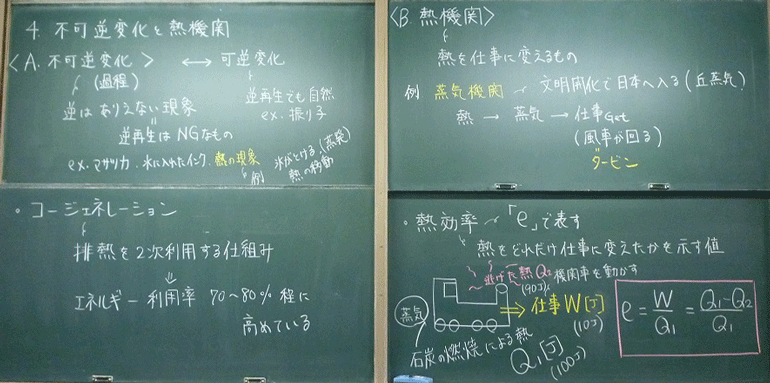 4. 不可逆変化と熱機関
〈A. 不可逆変化〉 ⟷ 可逆変化
(過程)
逆はありえない現象
逆再生はNGなもの
逆再生でも自然
ex. 振り子
ex. マサツ力. 水に入れたインク. 熱の現象
例 氷がとける. (蒸発)
熱の移動
〈B. 熱機関〉
熱を仕事に変えるもの
例 蒸気機関 文明開化で日本へ入る(丘蒸気)
熱 → 蒸気 → 仕事Get
(風車が回る)
タービン
・コージェネレーション
排熱を2次利用する仕組み
⇓
エネルギー利用率 70～80% 程に
高めている
・熱効率 「e」で表す
熱をどれだけ仕事に変えたかを示す値
逃げた熱Q₂ 機関車を動かす
(90J)
⇒ 仕事W[J]
(10J)
蒸気
石炭の燃焼による熱
Q₁[J]
(100J)
e = W/Q₁ = (Q₁-Q₂)/Q₁